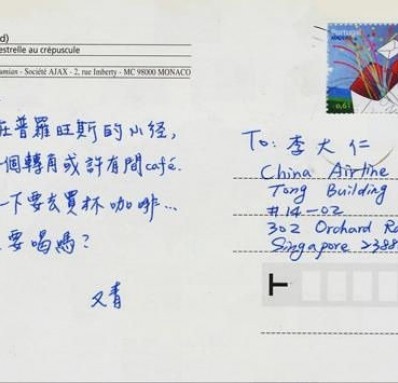 d)
estrelle au crépuscule
umian - Société AJAX - 2, rue Imberty - MC 98000 MONACO
Portugal
0,61
在普羅旺斯的小徑,
個轉角或許有間café.
一下要去買杯咖啡...
要喝嗎?
又青
To: 李大仁
China Airline
Tong Building
#14-02
302 Orchard Ro
Singapore 2388